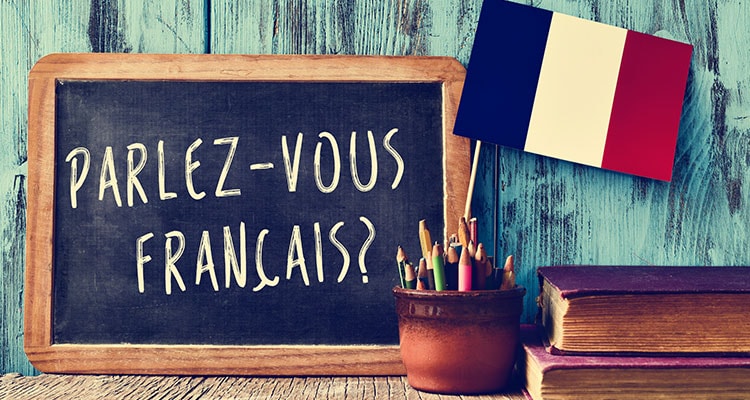 PARLEZ-VOUS
FRANÇAIS?